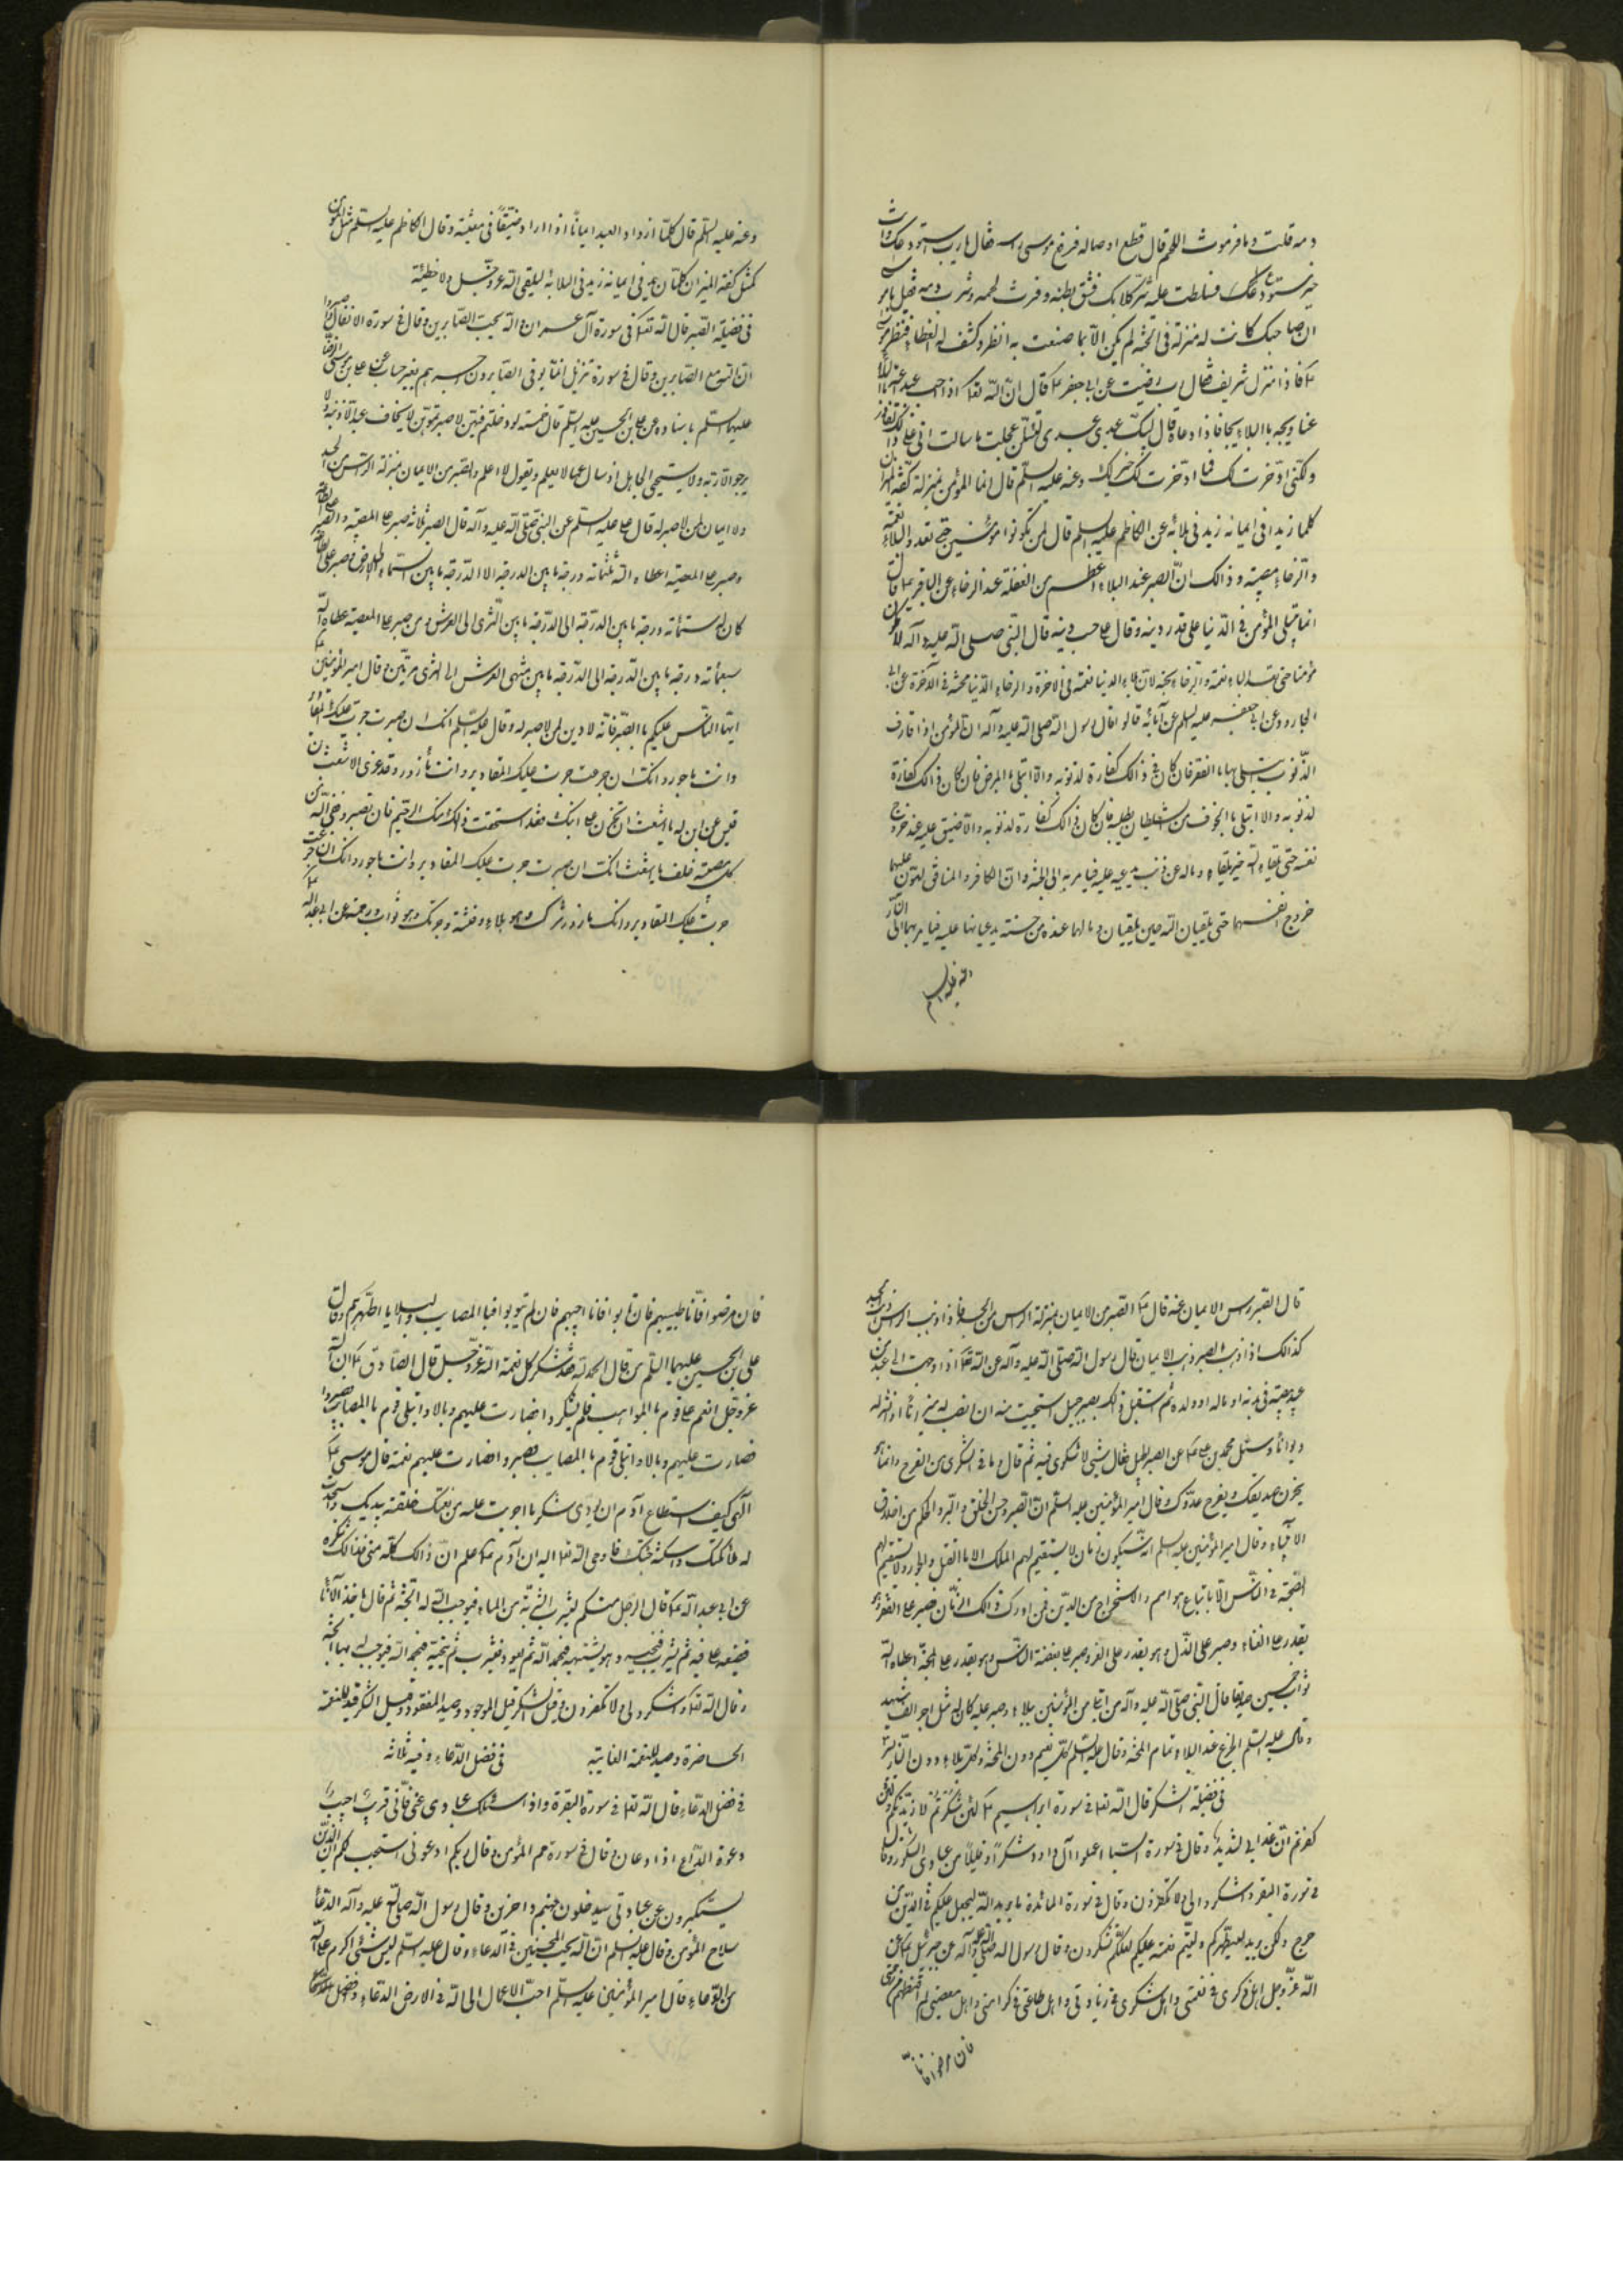 دمه قلت وما فرموث اللهم قال قطع اوصاله فرفع موسى راسه فقال يارب استودعتك وانت
خير مستودعك فسلطت عليه شر كلابك فشق بطنه وفرث لحمه وشرب دمه فقيل يا موسى
ان صاحبك كانت له منزلة في الجنة لم يكن الا بما صنعت به انظر وكشف له الغطاء فنظر موسى
فاذا منزل شريف فقال رب رضيت عن ابي جعفر ع قال ان الله تعالى اذا احب عبدا غته بالبلاء
غتا وثجه باالبلاء ثجا فاذا دعاه قال لبيك عبدي لئن عجلت ما سالت اني على ذلك لقادر
ولكني ادخرت لك فما ادخرت لك خير لك وعنه عليه السلم قال انما المؤمن بمنزلة كفة الميزان
كلما زيد في ايمانه زيد في بلائه عن الكاظم عليه السلم قال لن تكونوا مؤمنين حتى تعدوا البلاء نعمة
والرخاء مصيبة وذالك ان الصبر عند البلاء اعظم من الغفلة عند الرخاء عن الباقر ع قال
انما يبتلى المؤمن في الدنيا على قدر دينه وقال على حسب دينه قال النبي صلى الله عليه وآله لا يكون
مؤمنا حتى يعد البلاء نعمة والرخاء محنة لان بلاء الدنيا نعمة في الاخرة والرخاء الدنيا محنة في الاخرة عن ابي
الجارود عن ابي جعفر عليه السلم عن آبائه قالوا قال رسول الله صلى الله عليه وآله ان المؤمن اذا قارف
الذنوب ابتلي بها باالفقر فان كان في ذالك كفارة لذنوبه والا ابتلي باالمرض فان كان ذالك كفارة
لذنوبه والا ابتلي باالخوف من السلطان يطلبه فان كان ذالك كفارة لذنوبه والا ضيق عليه عند خروج
نفسه حتى يلقاه الله حين يلقاه وماله من ذنب يدعيه عليه فيامر به الى الجنة وان الكافر والمنافق ليهون عليهما
خروج انفسهما حتى يلقيان الله حين يلقيان وما لهما عنده من حسنة يدعيانها عليه فيامر بهما الى النار
وعنه عليه السلم
وعنه عليه السلم قال كلما ازداد العبد ايمانا ازداد ضيقا في معيشته وقال الكاظم عليه السلم مثل المؤمن
كمثل كفة الميزان كلما زيد في ايمانه زيد في البلائه ليلقى الله عز وجل ولا خطيئة
في فضيلة الصبر قال الله تعالى في سورة آل عمران والله يحب الصابرين وقال في سورة الانفال واصبروا
ان الله مع الصابرين وقال في سورة تنزيل انما يوفى الصابرون اجرهم بغير حساب عن علي بن موسى الرضا
عليهما السلم باسناده عن علي بن الحسين عليه السلم قال خمسة لو رحلتم فيهن لا يخاف عبد الا ذنبه ولا
يرجو الا ربه ولا يستحيي الجاهل اذ سال عما لا يعلم ويقول لا اعلم والصبر من الايمان بمنزلة الراس من الجسد
ولا ايمان لمن لا صبر له قال علي عليه السلم عن النبي صلى الله عليه وآله قال الصبر ثلاثه صبر على المصيبة والصبر على الطاعة
وصبر على المعصية اعطاه الله ثلثمائه درجة ما بين الدرجة الى الدرجة ما بين السماء الى الارض ومن صبر على الطاعة
كان له ستمائه درجة ما بين الدرجة الى الدرجة ما بين الثرى الى العرش ومن صبر على المعصية اعطاه الله
سبعمائه درجة ما بين الدرجة الى الدرجة ما بين منتهى العرش الى الثرى مرتين وقال امير المؤمنين ع
ايها الناس عليكم باالصبر فانه لا دين لمن لا صبر له وقال عليه السلم انك ان صبرت جرت عليك المقادير
وانت ماجور وانك ان جزعت جرت عليك المقادير وانت مأزور وقد عزى الاشعث بن
قيس عن ابن له يا اشعث ان تحزن على ابنك فقد استحقت ذالك منك الرحم فان تصبر وفي الله من
كل مصيبة خلف يا اشعث انك ان صبرت جرت عليك المقادير وانت ماجور وانك ان جزعت
جرت عليك المقادير وانك مازور سرك وهو بلاء وفتنة وحزنك وهو ثواب ورحمة عن ابي عبد الله ع
قال الصبر راس الايمان عنه قال ع الصبر من الايمان بمنزلة الراس من الجسد فاذا ذهب الراس ذهب الجسد
كذالك اذا ذهب الصبر ذهب الايمان قال رسول الله صلى الله عليه وآله عن الله تعالى اذا وجهت الى عبد من
عبيدي مصيبة في بدنه او ماله او ولده ثم استقبل ذالك بصبر جميل استحييت منه ان انصب له ميزانا او انشر له
ديوانا وسئل محمد بن علي ع عن الصبر الجميل فقال شيئى لا شكوى فيه ثم قال وما في الشكوى من الفرج وانما هو
يحزن صديقك ويفرح عدوك وقال امير المؤمنين عليه السلم ان الصبر وحسن الخلق والبر والحلم من اخلاق
الانبياء وقال امير المؤمنين عليه السلم انه سيكون زمان لا يستقيم لهم الملك الا باالقتل والجور ولا يستقيم لهم
الصحبة في الناس الا باتباع هواهم والاستخراج من الدين فمن ادرك ذالك الزمان فصبر على الفقر وهو
يقدر على الغناء وصبر على الذل وهو يقدر على العز وصبر على بغضة الناس وهو يقدر على المحبة اعطاه الله
ثواب خمسين صديقا قال النبي صلى الله عليه وآله من ابتلي من المؤمنين ببلاء وصبر عليه كان له مثل اجر الف شهيد
وقال عليه السلم الجزع عند البلاء تمام المحنة وقال عليه السلم كل نعيم دون الجنة وكل بلاء دون النار يسير
في فضيلة الشكر قال الله تعالى في سورة ابراهيم ع لئن شكرتم لازيدنكم ولئن
كفرتم ان عذابي لشديد وقال في سورة السبا اعملوا آل داود شكرا وقليل من عبادي الشكور وقال
في سورة البقر واشكروا لي ولا تكفرون وقال في سورة المائدة ما يريد الله ليجعل عليكم في الدين من
حرج ولكن يريد ليطهركم وليتم نعمته عليكم لعلكم تشكرون وقال رسول الله صلى الله عليه وآله عن جبرئيل ع عن
الله عز وجل اهل ذكري في نعمتي واهل شكري في زيادتي واهل طاعتي في كرامتي واهل معصيتي لم اقنطهم من رحمتي
فان مرضوا فانا
فان مرضوا فانا طبيبهم فان تابوا فانا حبيبهم فان لم يتوبوا فباالمصايب والبلايا اطهرهم وقال
علي بن الحسين عليهما السلم من قال الحمد لله فقد شكر كل نعمة الله عز وجل قال الصادق ع ان الله
عز وجل انعم على قوم باالمواهب فلم يشكروا فصارت عليهم وبالا وابتلى قوم باالمصايب فصبروا
فصارت عليهم وبالا وابتلى قوم باالمصايب فصبروا فصارت عليهم نعمة قال موسى ع
الهي كيف استطاع آدم ان يؤدي شكر ما اجريت عليه من نعمتك خلقته بيديك واسجدت
له ملائكتك واسكنته جنتك فاوحى الله تعالى اليه ان آدم ع علم ان ذالك كله مني فذالك شكره
عن ابي عبد الله ع قال الرجل منكم ليشرب الشربة من الماء فيوجب الله له الجنة ثم قال ياخذ الاناء
فيضعه على فيه ثم يشرب فينحيه وهو يشتهيه فيحمد الله ثم يعود فيشرب ثم ينحيه فيحمد الله فيوجب له بها الجنة
وقال الله تعالى واشكروا لي ولا تكفرون وقيل الشكر قيد الموجود وصيد المفقود وقيل الشكر قيد للنعمة
الحاضرة وصيد للنعمة الغايبة في فضل الدعاء وفيه ثلاثة
في فضل الدعاء قال الله تعالى في سورة البقرة واذا سئلك عبادي عني فاني قريب اجيب
دعوة الداع اذا دعان وقال في سورة حم المؤمن وقال ربكم ادعوني استجب لكم ان الذين
يستكبرون عن عبادتي سيدخلون جهنم داخرين وقال رسول الله صلى الله عليه وآله الدعاء
سلاح المؤمن وقال عليه السلم ان الله يحب الملحين في الدعاء وقال عليه السلم ليس شيئى اكرم على الله
من الدعاء وقال امير المؤمنين عليه السلم احب الاعمال الى الله في الارض الدعاء وافضل